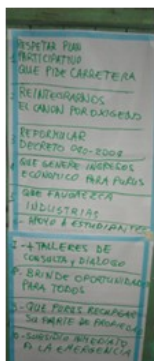 RESPETAR PLAN
PARTICIPATIVO
QUE PIDE CARRETERA
REINTEGRARNOS
EL CANON POR OXIGENO
REFORMULAR
DECRETO 040-2008
QUE GENERE INGRESOS
ECONOMICO PARA PURUS
QUE FAVOREZCA
INDUSTRIAS
APOYO A ESTUDIANTES
+ TALLERES DE
CONSULTA y DIALOGO
BRINDE OPORTUNIDAD
PARA TODOS
QUE PURUS RECUPERE
SU PARTE DE
SUBSIDIO INMEDIATO
EMERGENCIA